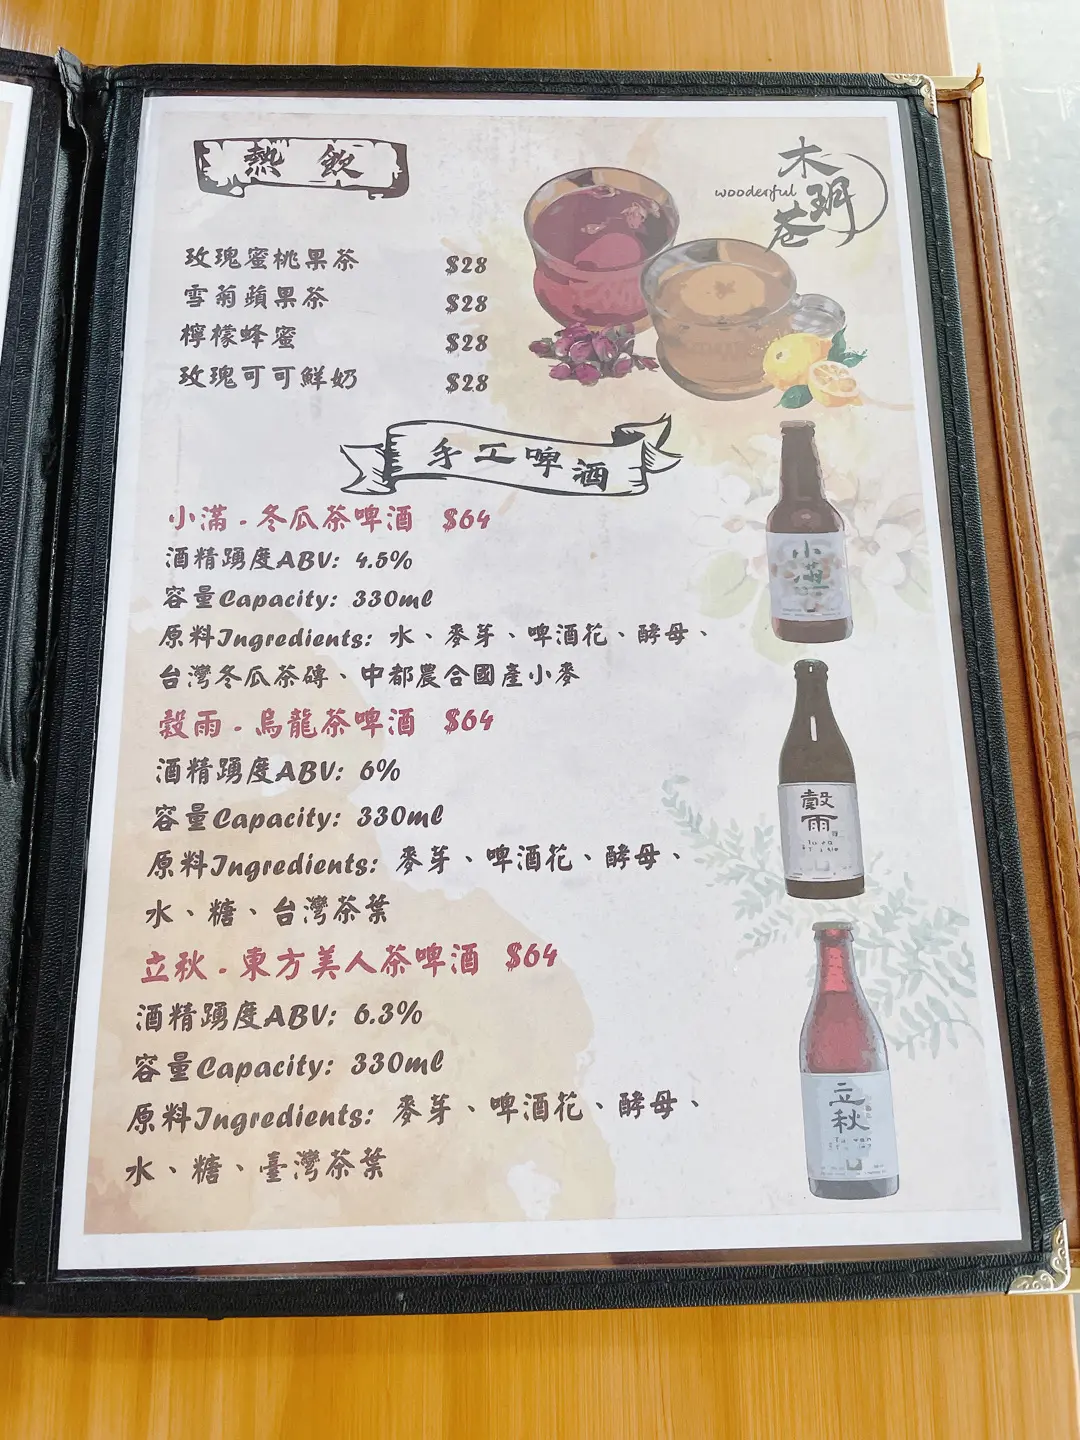 熱 飲
木
wooderful
玥
巷
玫瑰蜜桃果茶 $28
雪菊蘋果茶 $28
檸檬蜂蜜 $28
玫瑰可可鮮奶 $28
手工啤酒
小滿．冬瓜茶啤酒 $64
酒精踴度ABV: 4.5%
容量Capacity: 330ml
原料Ingredients: 水、麥芽、啤酒花、酵母、
台灣冬瓜茶磚、中都農合國產小麥
穀雨．烏龍茶啤酒 $64
酒精踴度ABV: 6%
容量Capacity: 330ml
原料Ingredients: 麥芽、啤酒花、酵母、
水、糖、台灣茶葉
立秋．東方美人茶啤酒 $64
酒精踴度ABV: 6.3%
容量Capacity: 330ml
原料Ingredients: 麥芽、啤酒花、酵母、
水、糖、臺灣茶葉
小滿
穀雨
立秋